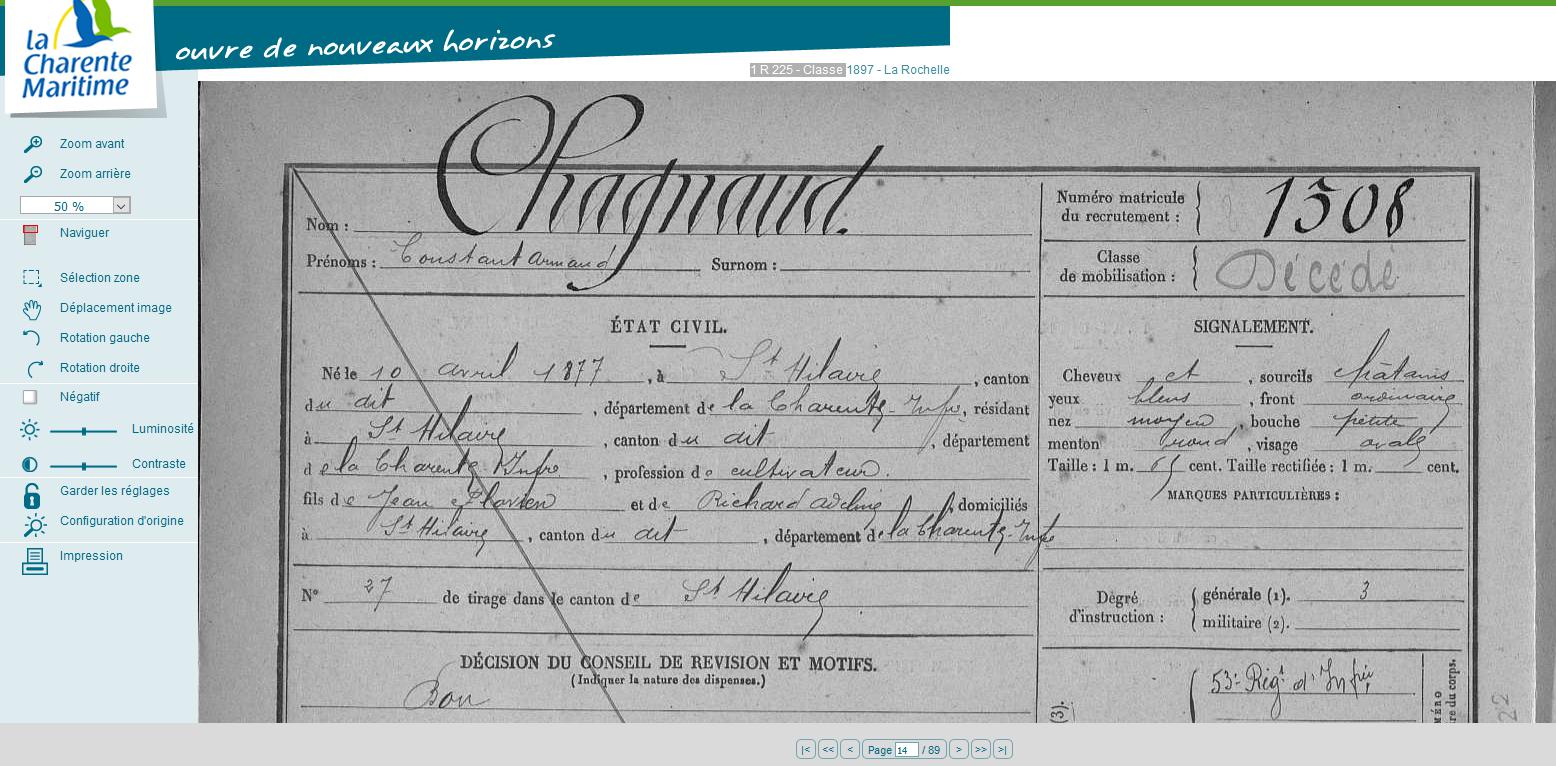 la
Charente
Maritime
ouvre de nouveaux horizons
1 R 225 - Classe 1897 - La Rochelle
Zoom avant
Zoom arrière
50 %
Naviguer
Sélection zone
Déplacement image
Rotation gauche
Rotation droite
Négatif
Luminosité
Contraste
Garder les réglages
Configuration d'origine
Impression
Chagnaud.
Nom :
Prénoms : Constant Armand Surnom :
Numéro matricule
du recrutement : 1308
Classe
de mobilisation : Décédé
ÉTAT CIVIL.
Né le 10 avril 1877, à St Hilaire, canton
du dit, département de la Charente-Infre, résidant
à St Hilaire, canton du dit, département
de la Charente Infre, profession de cultivateur.
fils de Jean Flavien et de Richard Adeline, domiciliés
à St Hilaire, canton du dit, département de la Charente-Infre
N° 27 de tirage dans le canton de St Hilaire
DÉCISION DU CONSEIL DE REVISION ET MOTIFS.
(Indiquer la nature des dispenses.)
Bon
SIGNALEMENT.
Cheveux et, sourcils châtains
yeux bleus, front ordinaire
nez moyen, bouche petite
menton rond, visage ovale
Taille : 1 m. 65 cent. Taille rectifiée : 1 m. cent.
MARQUES PARTICULIÈRES :
Dègré
d'instruction :
générale (1). 3
militaire (2).
53e Régt d'Infrie
(3).
MÉRO
re du corps.
22
|< << < Page 14 / 89 > >> >|